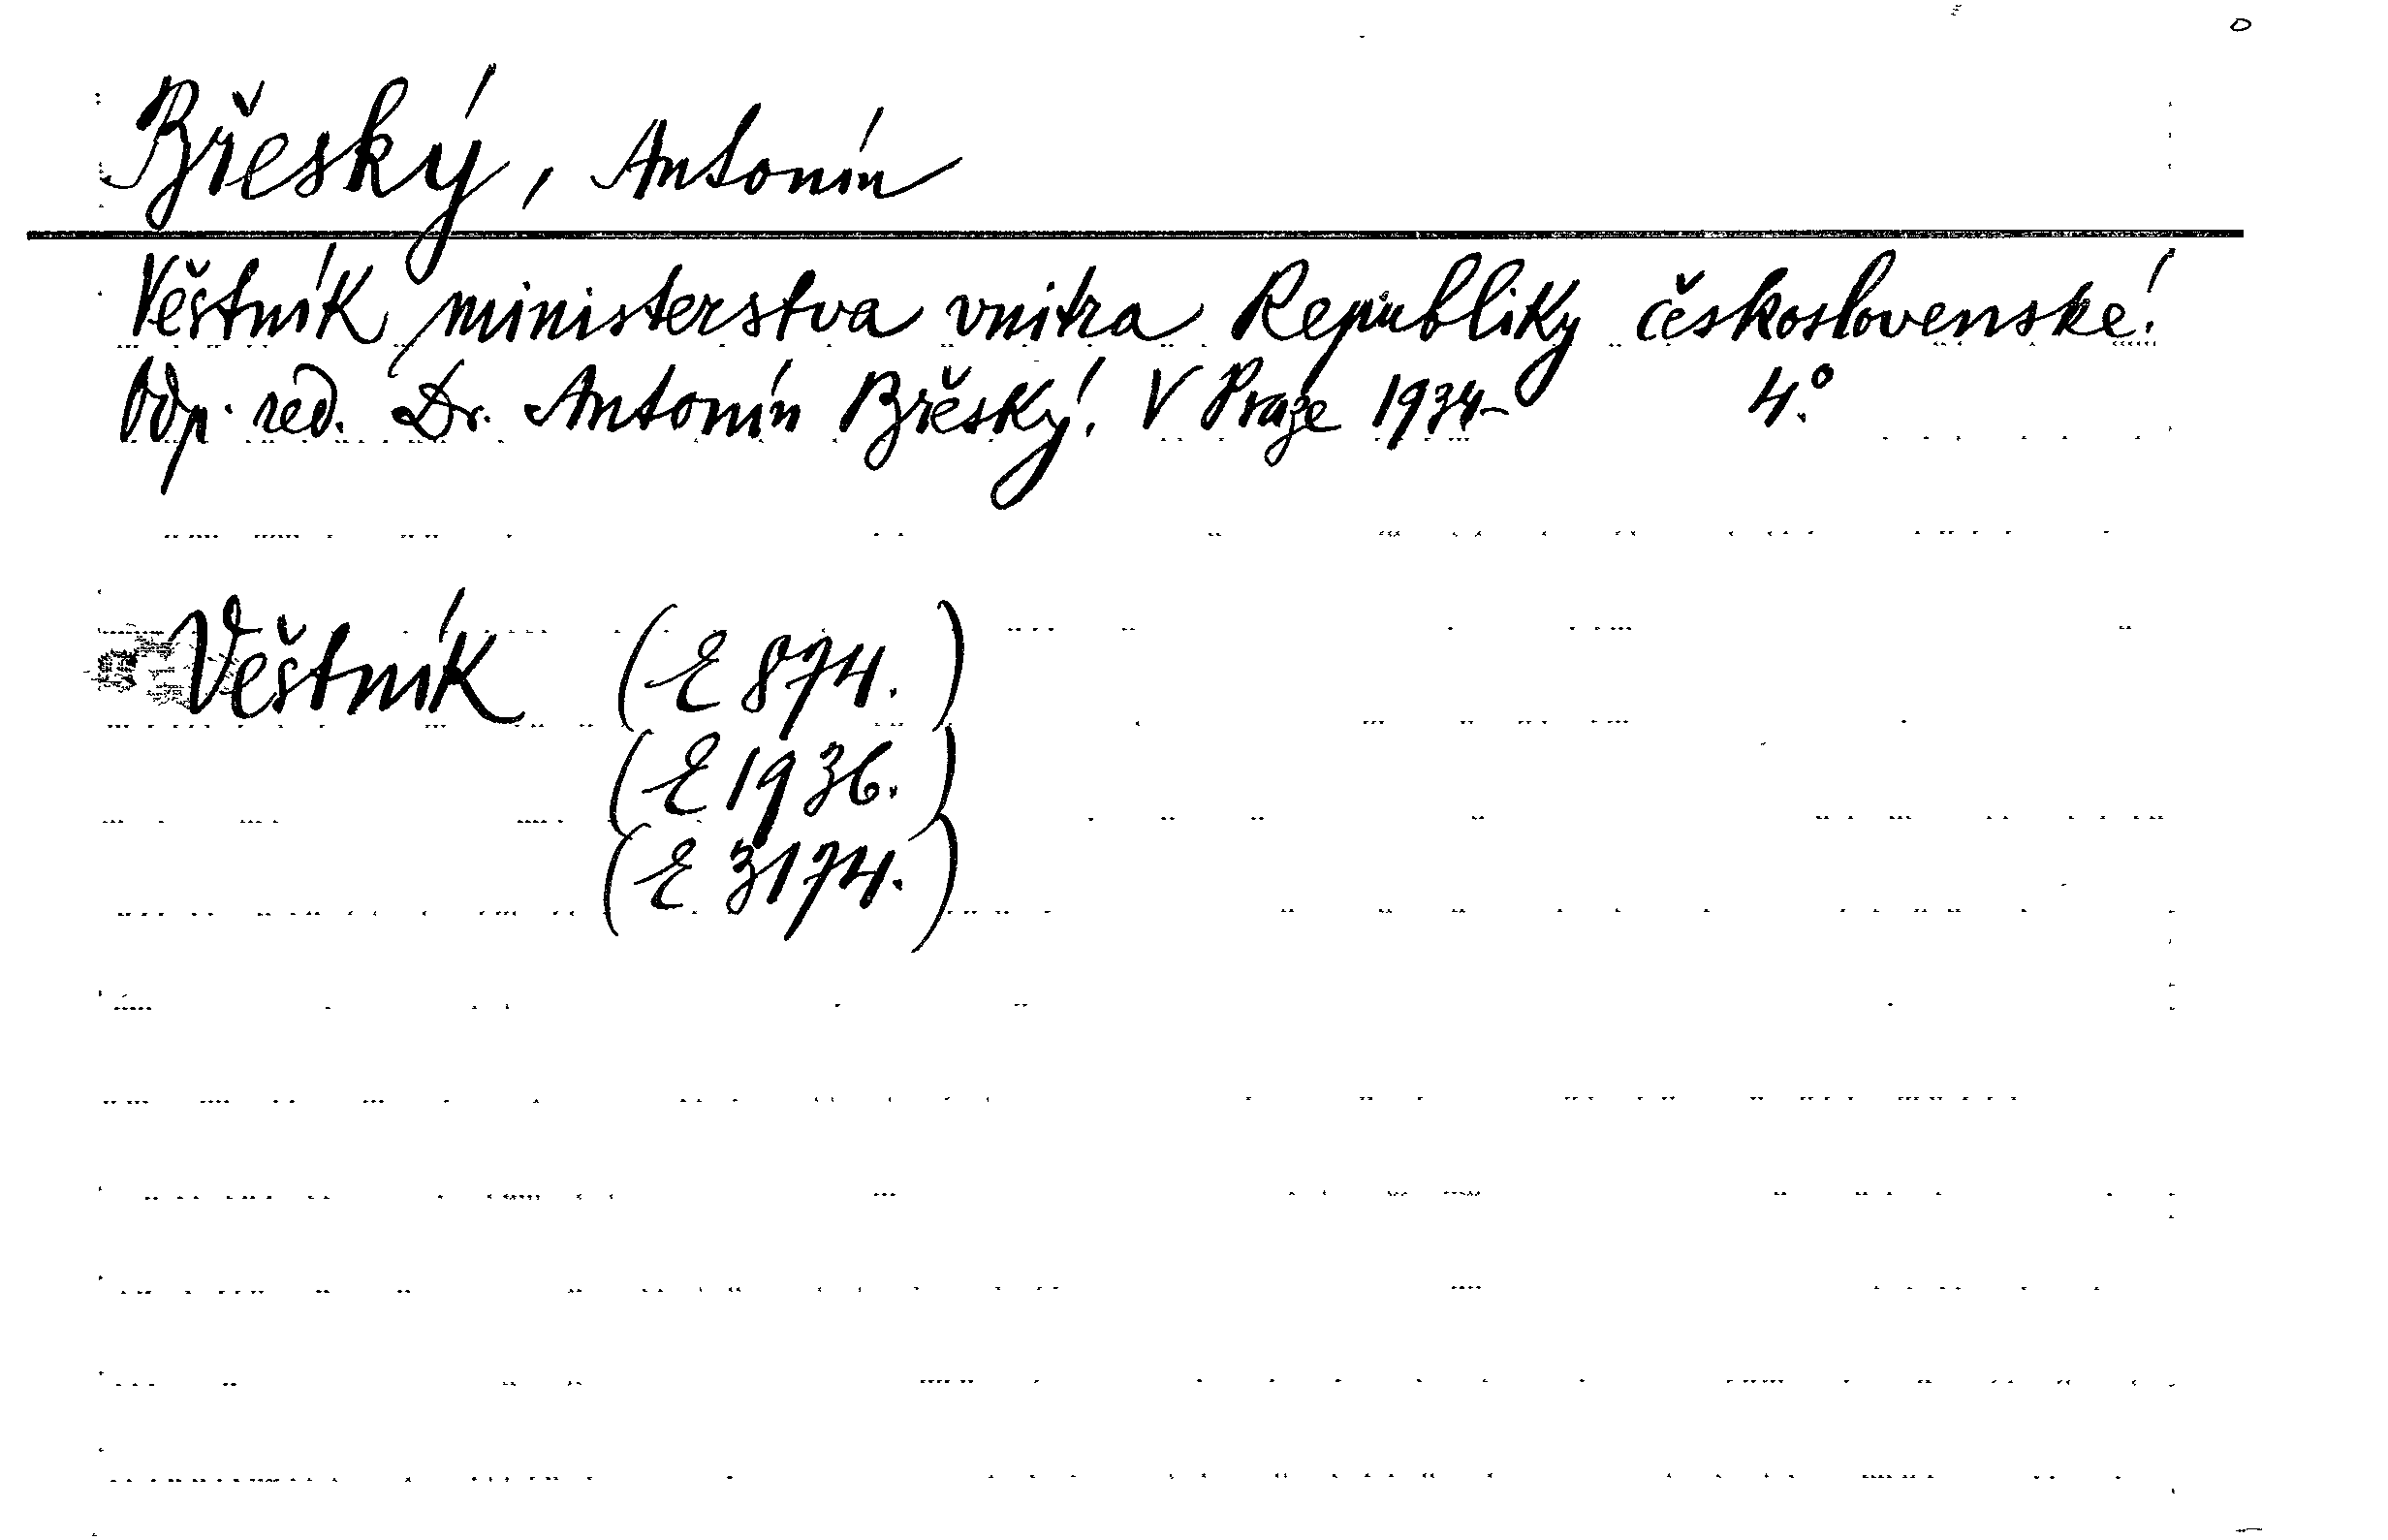 Břeský, Antonín
Věstník ministerstva vnitra Republiky československé.
Odp. red. Dr. Antonín Břeský. V Praze 1934- 4.°
Věstník (E 874.)
(E 1936.)
(E 3174.)